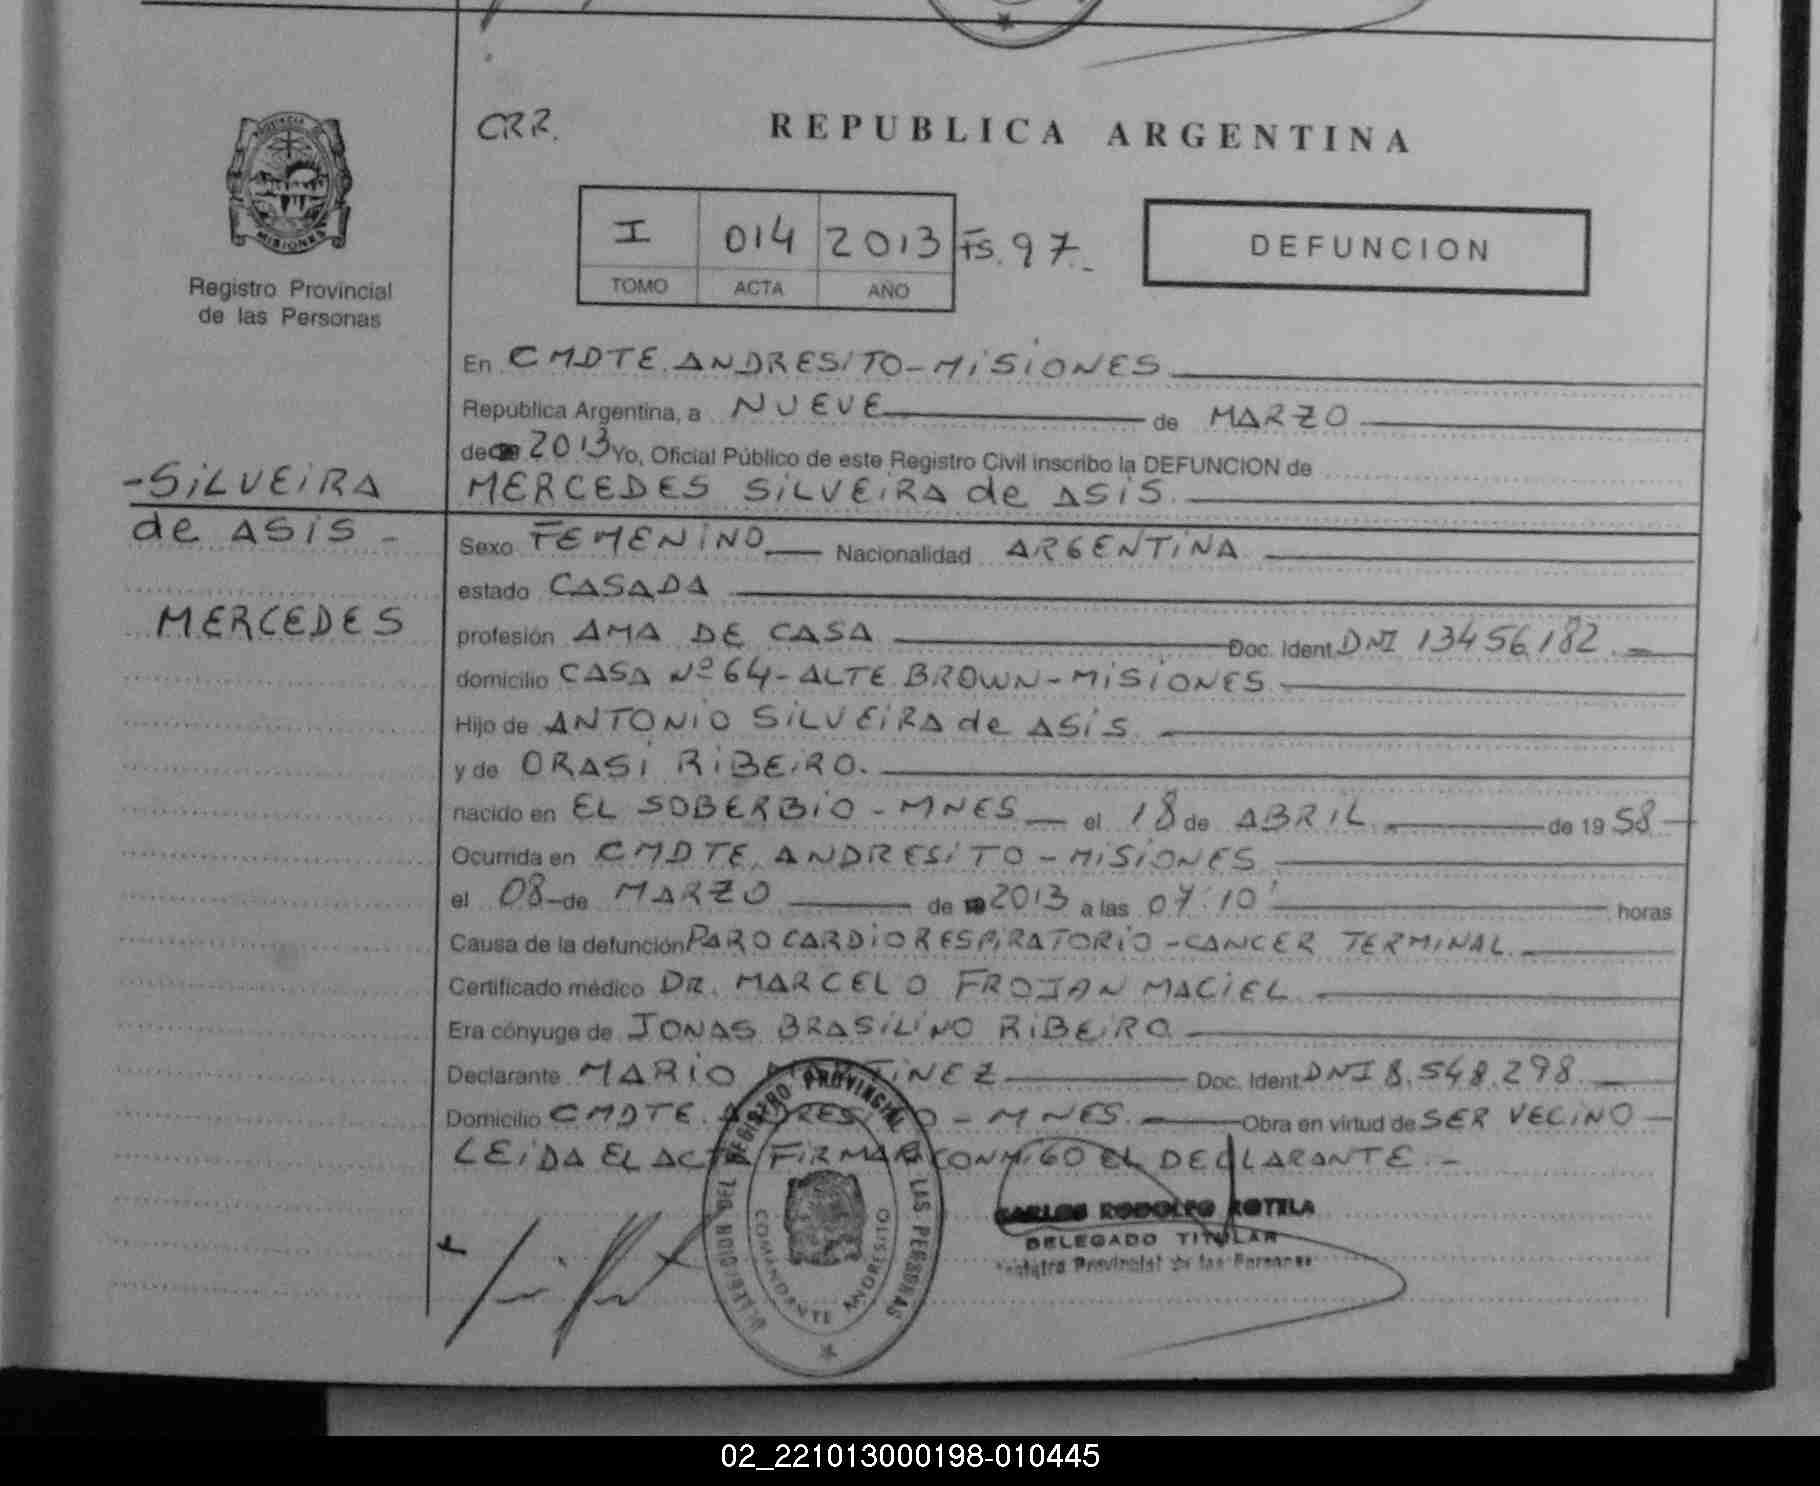 PROVINCIA DE
MISIONES
Registro Provincial
de las Personas
CRR.
REPUBLICA ARGENTINA
I 014 2013 Fs. 97.-
TOMO ACTA AÑO
DEFUNCION
En CMDTE. ANDRESITO-MISIONES
República Argentina, a NUEVE de MARZO
de 2013 Yo, Oficial Público de este Registro Civil inscribo la DEFUNCION de
-SILVEIRA
MERCEDES SILVEIRA de ASIS.
de ASIS -
Sexo FEMENINO Nacionalidad ARGENTINA
estado CASADA
MERCEDES
profesión AMA DE CASA Doc. Ident. DNI 13456182.-
domicilio CASA Nº 64-ALTE BROWN-MISIONES
Hijo de ANTONIO SILVEIRA de ASIS.
y de ORASI RIBEIRO.
nacido en EL SOBERBIO - MNES el 18 de ABRIL de 19 58
Ocurrida en CMDTE. ANDRESITO - MISIONES
el 08 de MARZO de 2013 a las 07:10' horas
Causa de la defunción PARO CARDIORESPIRATORIO-CANCER TERMINAL
Certificado médico DR. MARCELO FROJAN MACIEL
Era cónyuge de JONAS BRASILINO RIBEIRO
Declarante MARIO MARTINEZ Doc. Ident. DNI 8.548.298
Domicilio CMDTE. ANDRESITO - MNES. Obra en virtud de SER VECINO
LEIDA EL ACTA FIRMAN CONMIGO EL DECLARANTE.-
DELEGACION DEL REGISTRO PROVINCIAL DE LAS PERSONAS
COMANDANTE ANDRESITO
CARLOS RODOLFO ROTELA
DELEGADO TITULAR
Registro Provincial de las Personas
02_221013000198-010445